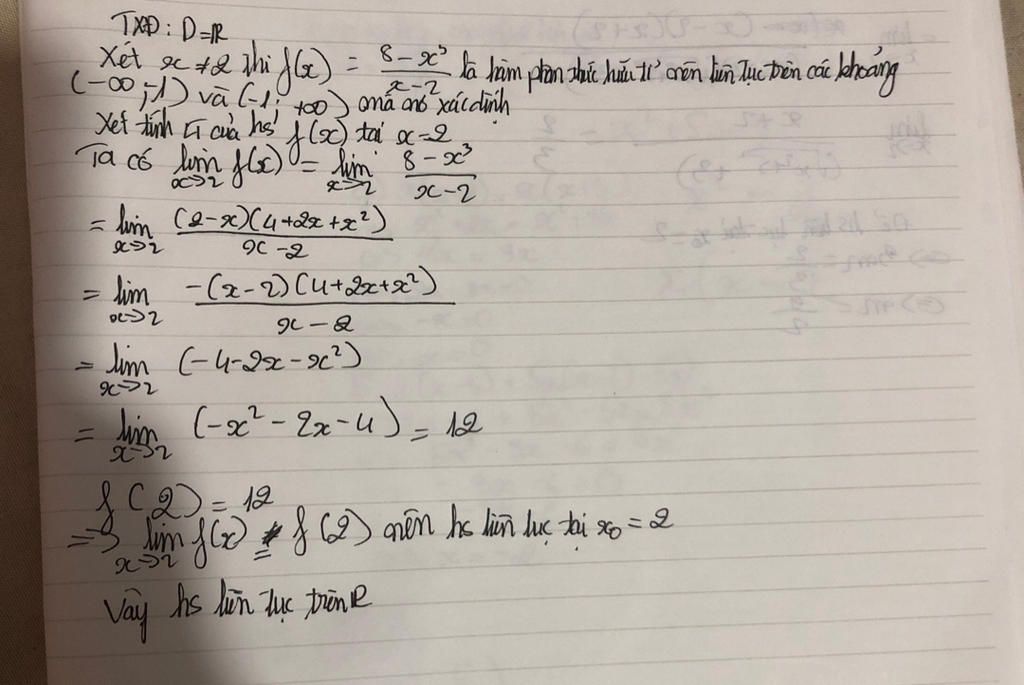 TXĐ: D=ℝ
Xét x ≠ 2 thì f(x) = \frac{8-x^3}{x-2} là hàm phân thức hữu tỉ nên liên tục trên các khoảng
(-∞; -1) và (-1; +∞) mà nó xác định
Xét tính LT của hs f(x) tại x=2
Ta có \lim_{x→2} f(x) = \lim_{x→2} \frac{8-x^3}{x-2}
= \lim_{x→2} \frac{(2-x)(4+2x+x^2)}{x-2}
= \lim_{x→2} \frac{-(x-2)(4+2x+x^2)}{x-2}
= \lim_{x→2} (-4-2x-x^2)
= \lim_{x→2} (-x^2-2x-4) = 12
f(2) = 12
=> \lim_{x→2} f(x) = f(2) nên hs liên tục tại x_0 = 2
Vậy hs liên tục trên ℝ